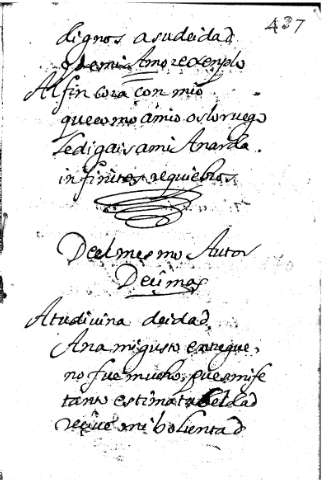 437
dignos a su deidad
de mi Amor exenplo
Al fin coraçon mio
que como amio os lo ruego
le digais ami Anarda
infinitos requiebros
De el mesmo Autor
Decimas
A tu divina deidad
Ana mi gusto entregue,
no fue mucho, pues mi fe
tanto estima tu beldad
recive mi bolientad